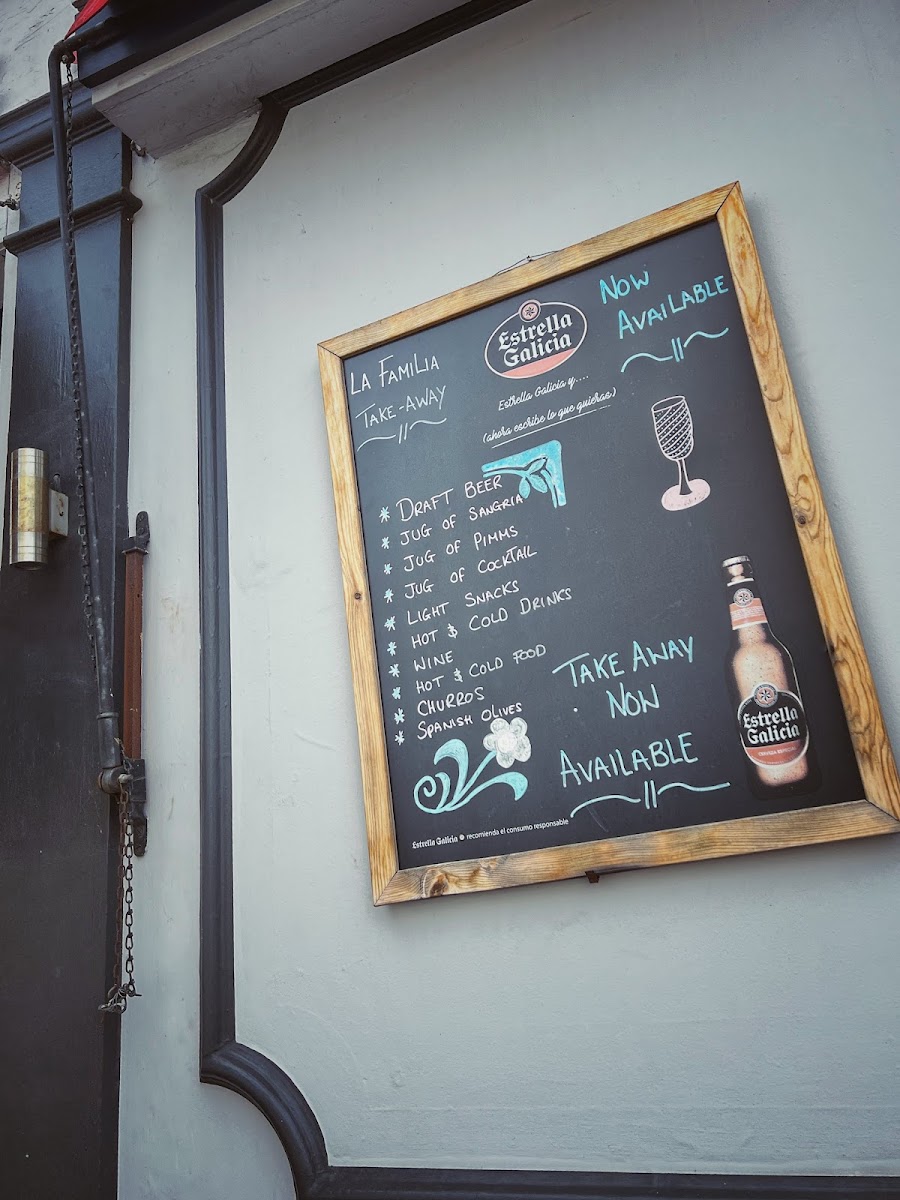 LA FAMILIA
TAKE-AWAY
Estrella
Galicia
Estrella Galicia y....
(ahora escribe lo que quieras)
NOW
AVAILABLE
* DRAFT BEER
* JUG OF SANGRIA
* JUG OF PIMMS
* JUG OF COCKTAIL
* LIGHT SNACKS
* HOT & COLD DRINKS
* WINE
* HOT & COLD FOOD
* CHURROS
* SPANISH OLIVES
TAKE AWAY
NOW
AVAILABLE
Estrella
Galicia
CERVEZA ESPECIAL
Estrella Galicia recomienda el consumo responsable